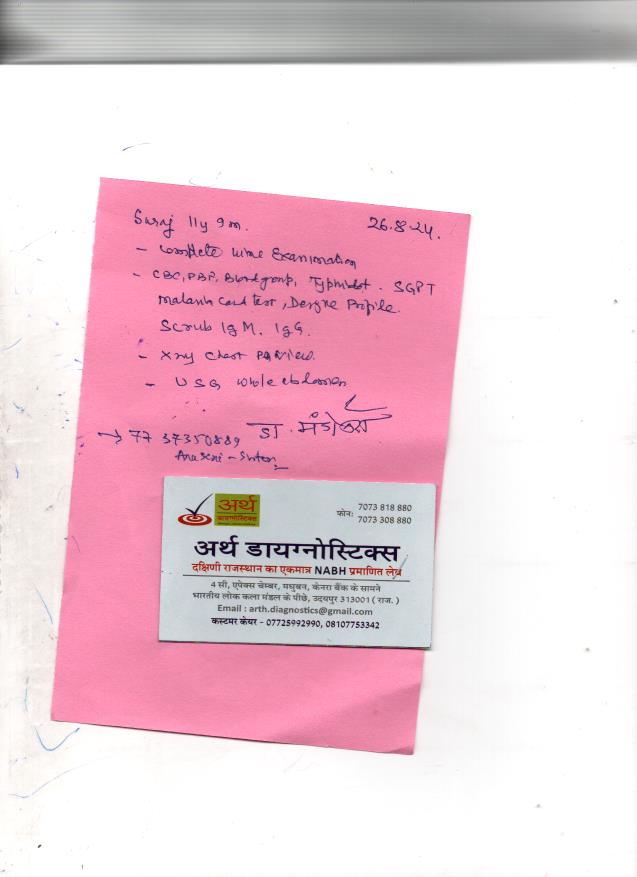 Suraj 11y 9m.
26.8.24.
- Complete Urine Examination
- CBC, PBF, Blood group, Typhidot. SGPT
Malaria Card test, Dengue Profile.
Scrub IgM, IgG.
- Xray Chest PA View.
- USG whole abdomen
डा. 
→ 77 37350889
अर्थ
डायग्नोस्टिक्स
फोन: 7073 818 880
7073 308 880
अर्थ डायग्नोस्टिक्स
दक्षिणी राजस्थान का एकमात्र NABH प्रमाणित लेब
4 सी, एपेक्स चेम्बर, मधुबन, केनरा बैंक के सामने
भारतीय लोक कला मंडल के पीछे, उदयपुर 313001 ( राज. )
Email : arth.diagnostics@gmail.com
कस्टमर केयर - 07725992990, 08107753342